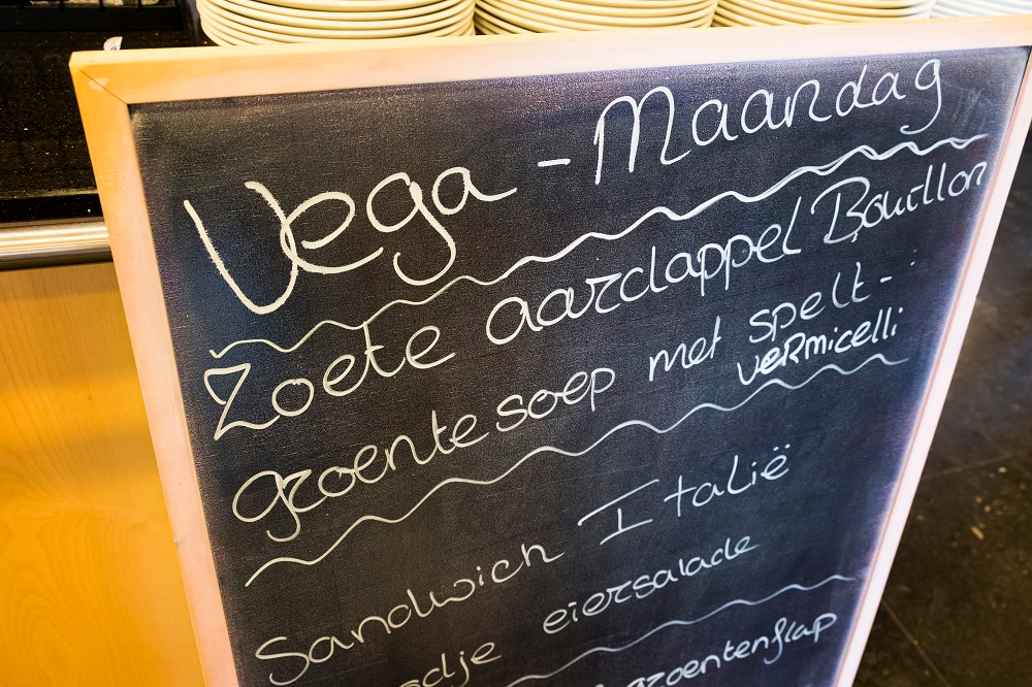 Vega - Maandag
Zoete aardappel Bouillon
groentesoep met spelt-
vermicelli
Sandwich Italië
eiersalade
groentenflap